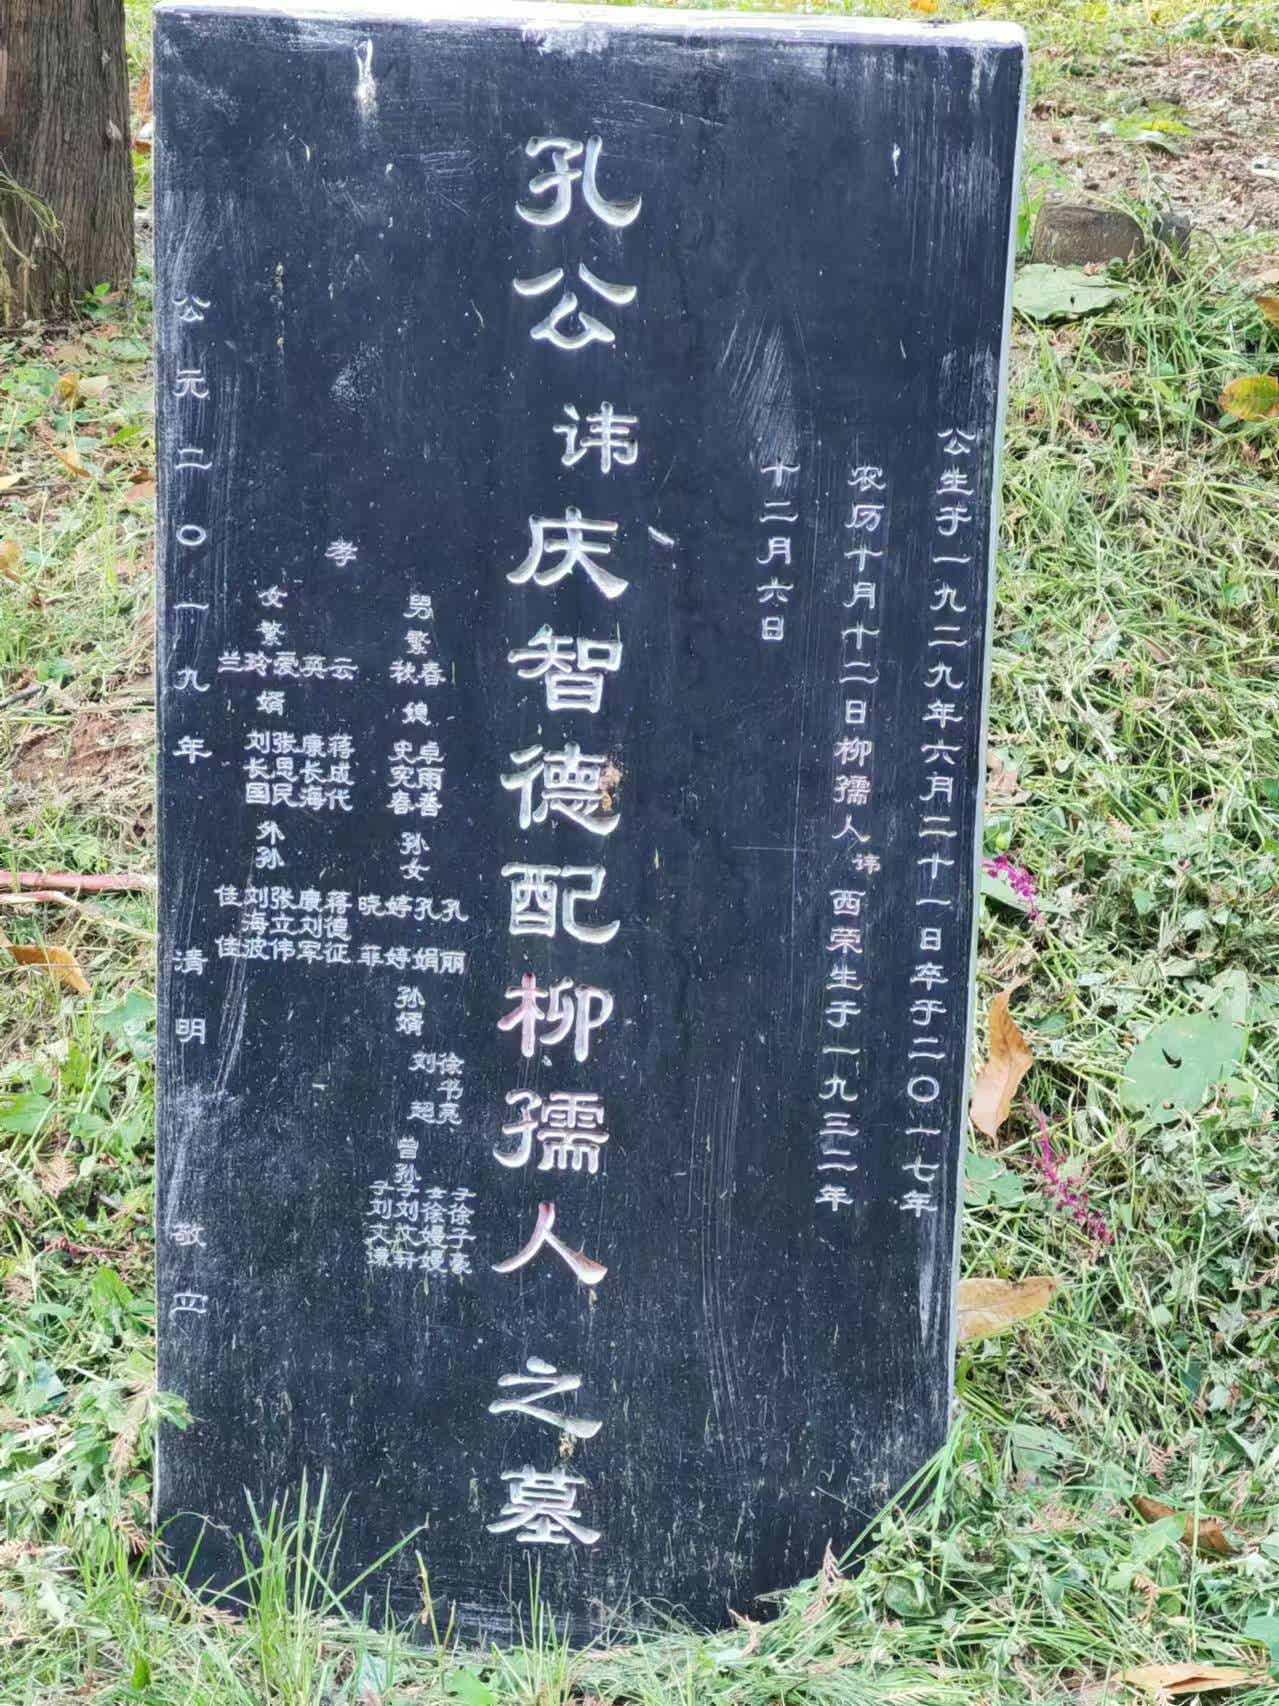 公生于一九二九年六月二十一日卒于二〇一七年
农历十月十二日柳孺人讳西荣生于一九三二年
十二月六日
孔公讳庆智德配柳孺人之墓
孝
男繁
春
秋
媳
卓雨香
史宪春
孙女
孔丽
孔娟
婷婷
晓菲
孙婿
徐书亮
刘超
曾孙
子徐子豪
女徐嫚嫚
子刘文轩
子刘文
女繁
云
英
爱
玲
兰
婿
蒋成代
康长海
张思民
刘长国
外孙
蒋德征
康刘军
张立伟
刘海波
佳佳
公元二〇一九年 清明 敬立